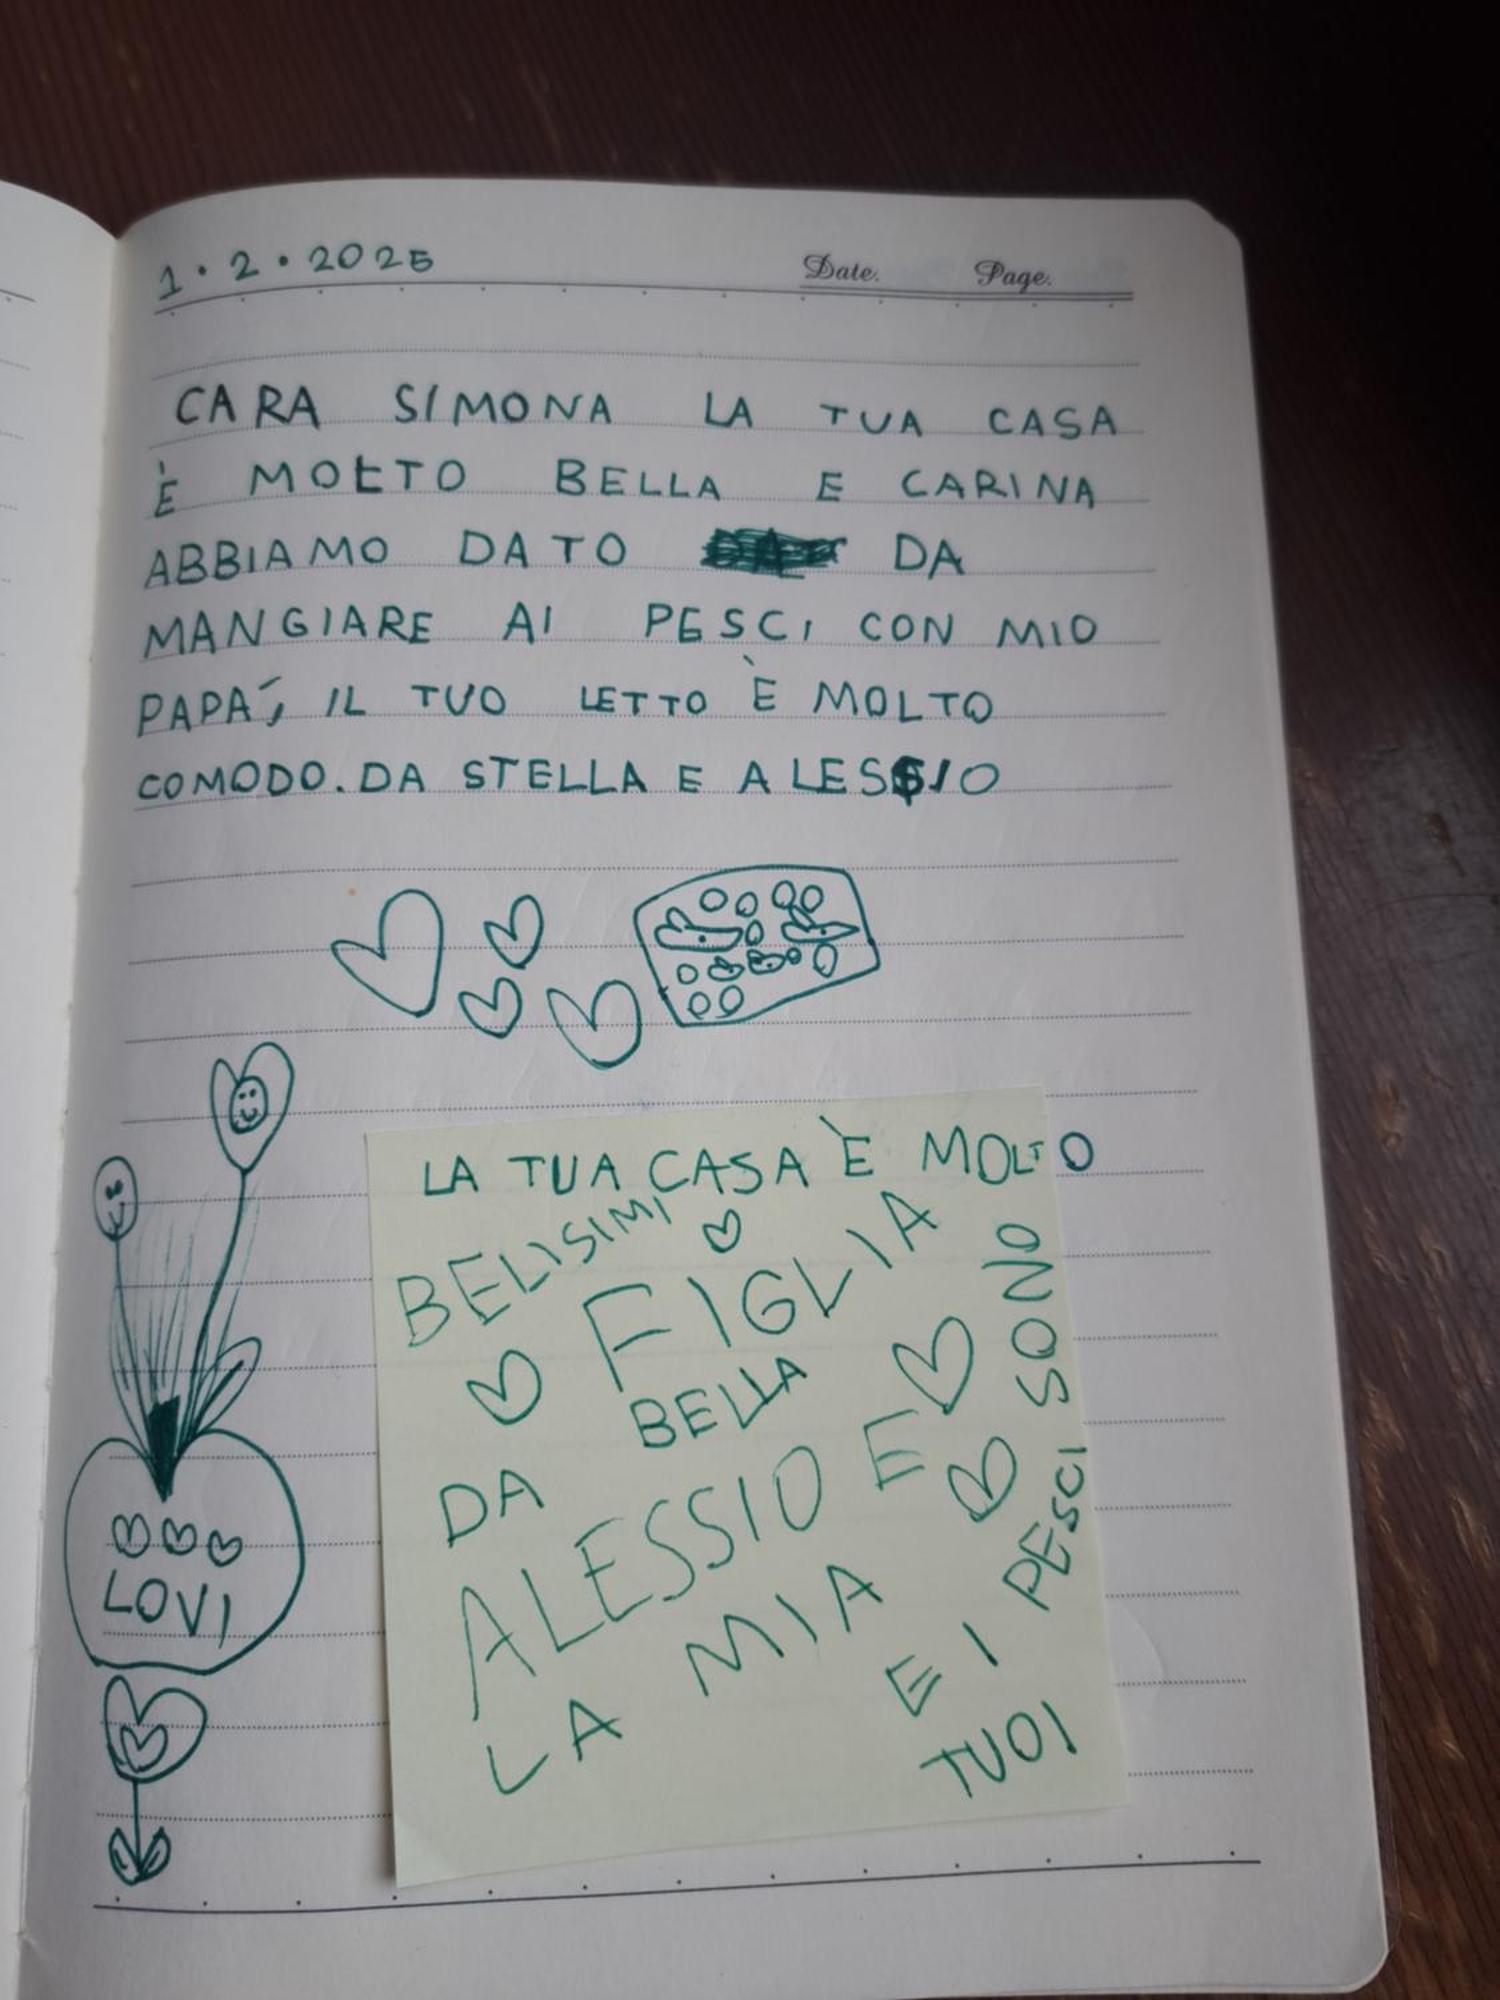 1.2.2025
Date. Page.
CARA SIMONA LA TUA CASA
È MOLTO BELLA E CARINA
ABBIAMO DATO DA
MANGIARE AI PESCI CON MIO
PAPÁ, IL TUO LETTO È MOLTO
COMODO. DA STELLA E ALESSIO
LA TUA CASA È MOLTO
BELLA
E I TUOI
PESCI SONO
BELISIMI
DA
ALESSIO E
LA MIA
FIGLIA
LOVI